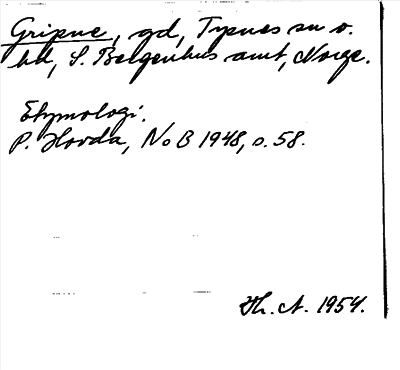 Gripne, gd, Tysnes sn o.
hd, S. Bergenhus amt, Norge.
Etymologi.
P. Hovda, NoB 1948, s. 58.
Th. A. 1954.